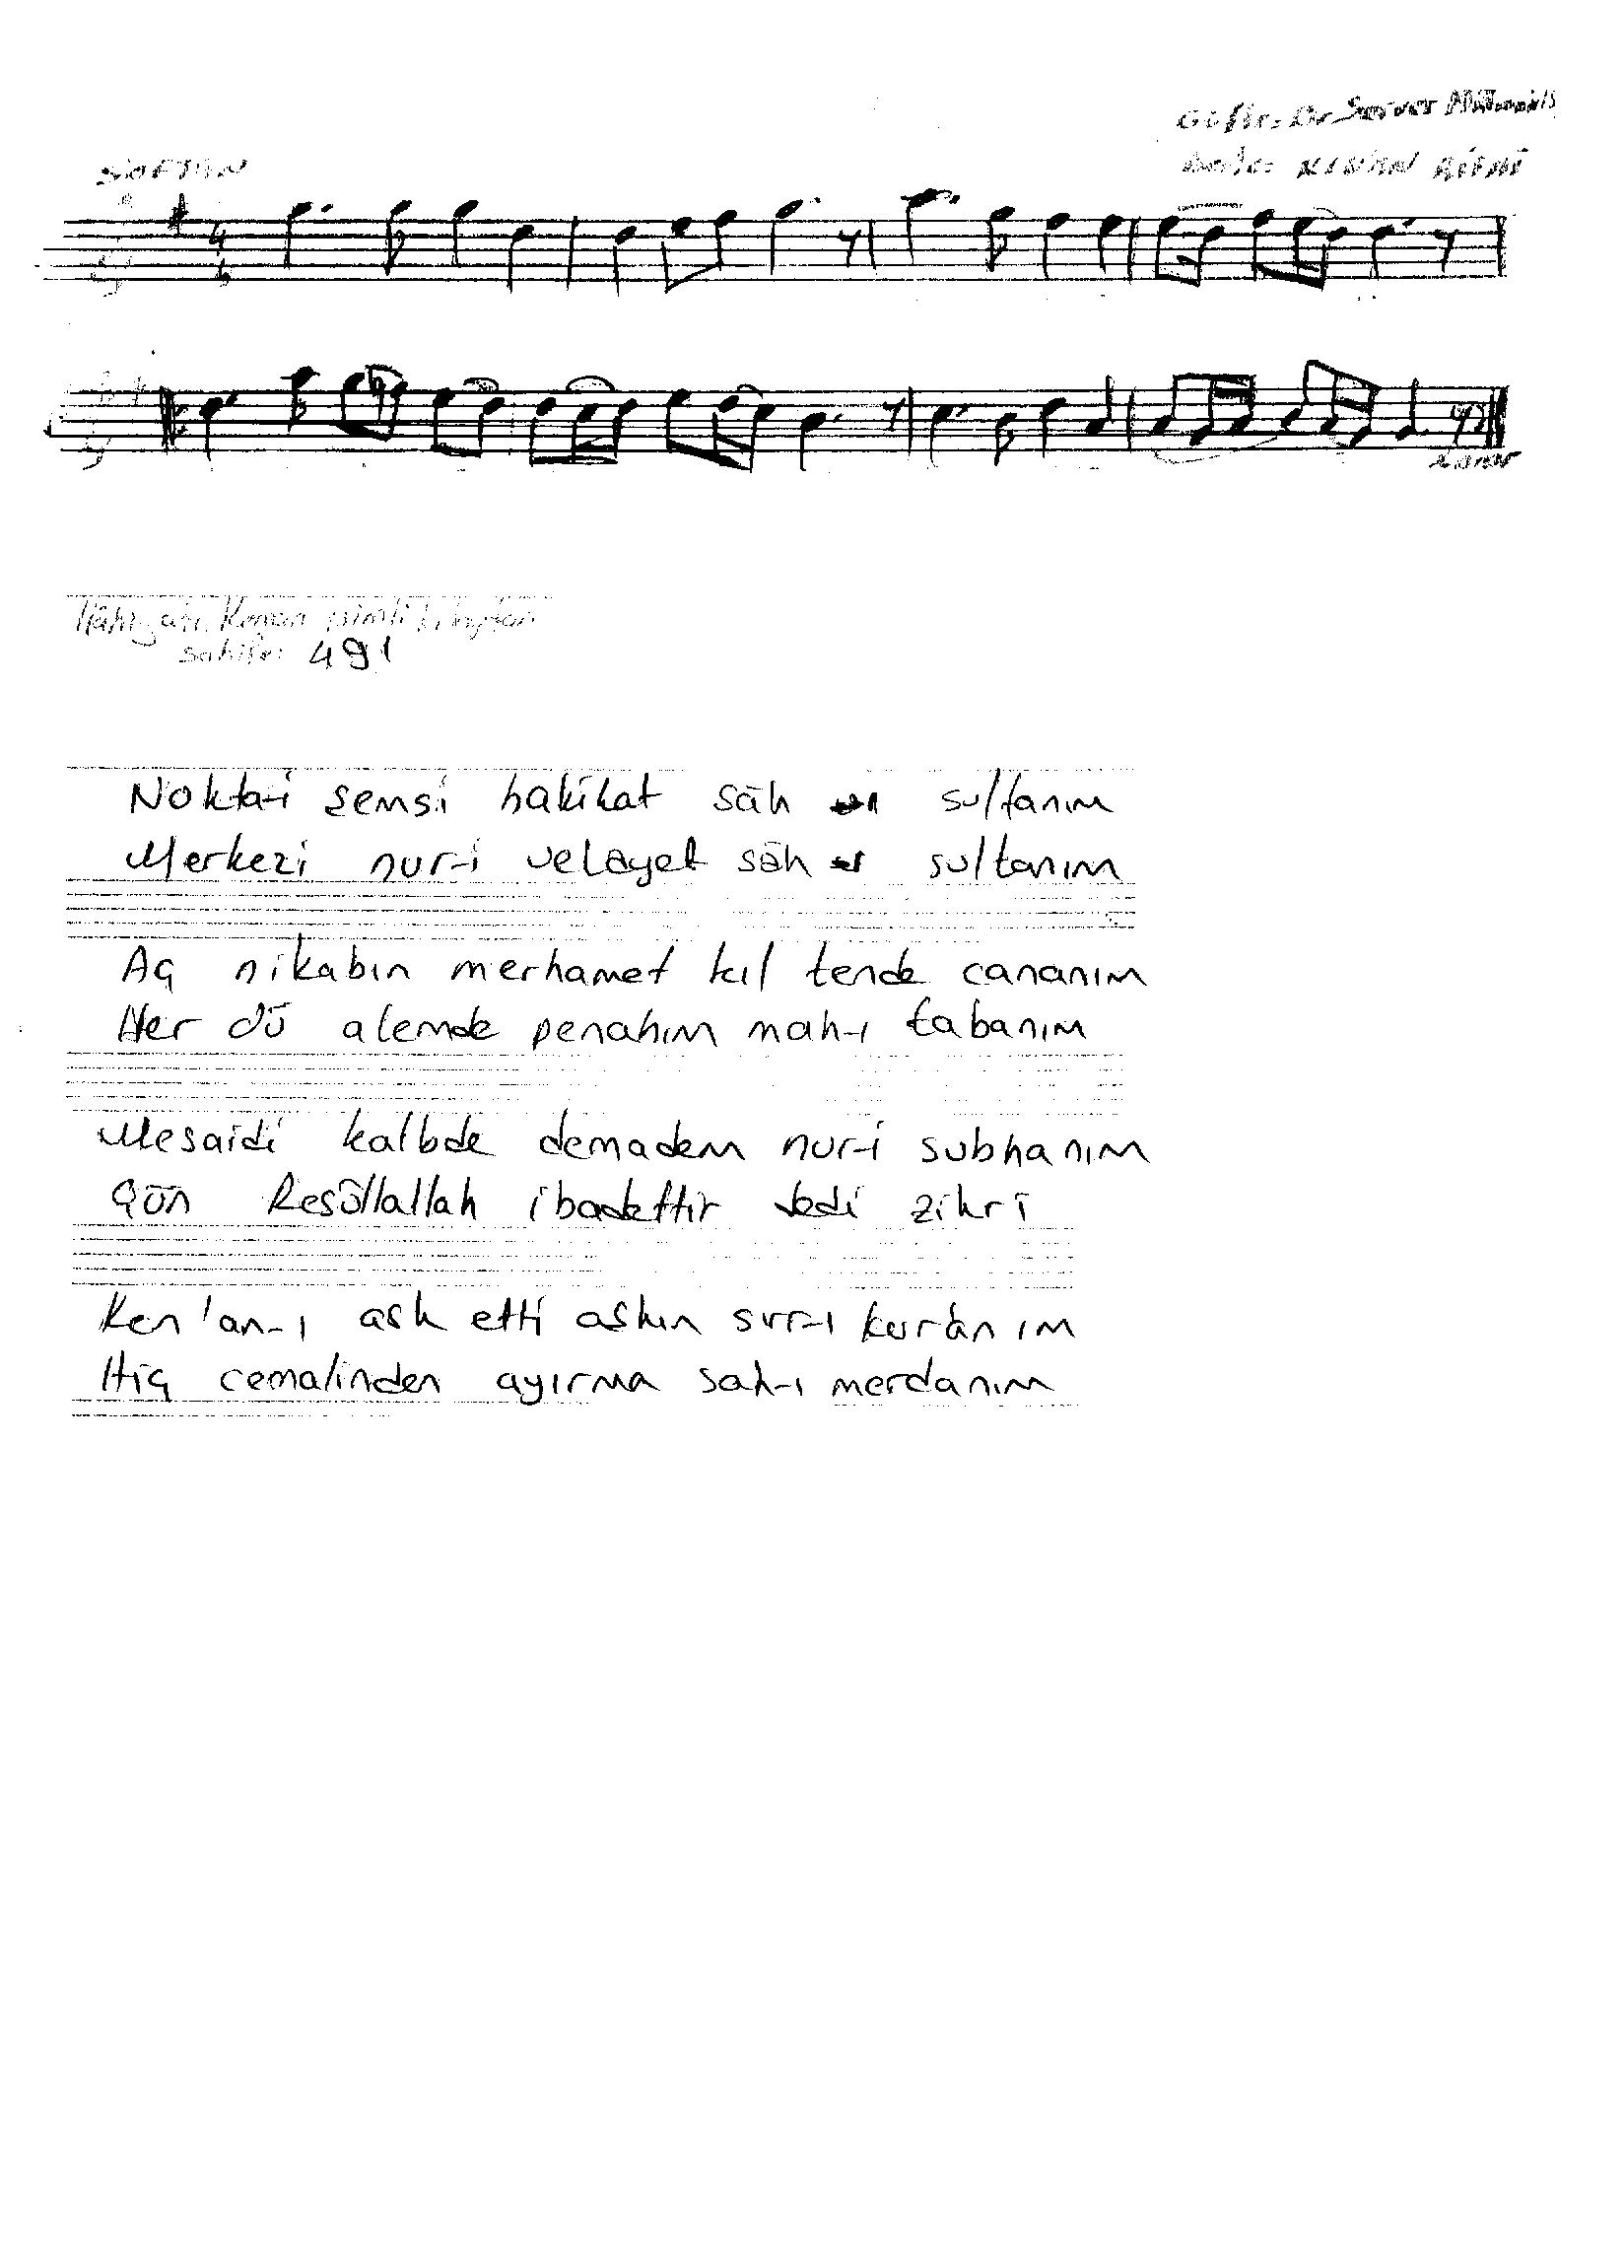 SOFYAN
Güfte: Dr Server
Beste: KENAN RİFAİ
4
Karar
İlâhiyatı Kenan isimli kitaptan
sahife: 491
Nokta-i şemsi hakikat sāh sultanım
Merkezi nur-i velayet sāh sultanım
Aç nikabın merhamet kıl tende cananım
Her dū alemde penahım mah-ı tabanım
Mesaidi kalbde demadem nur-i subhanım
Çün Resûllallah ibadettir dedi zikri
Ken'an-ı ask etti askın sırr-ı kurânım
Hiç cemalinden ayırma sah-ı merdanım